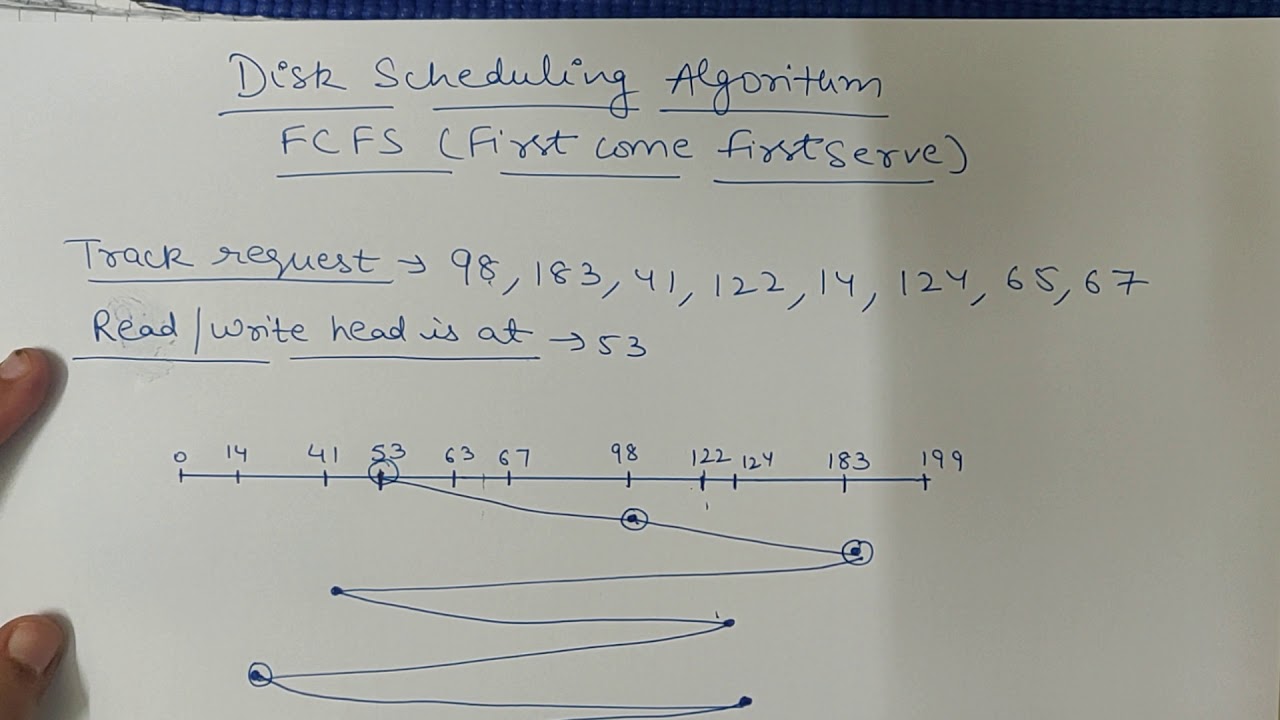 Disk Scheduling Algorithm
FCFS (First come first serve)
Track request → 98, 183, 41, 122, 14, 124, 65, 67
Read/Write head is at → 53
0 14 41 53 63 67 98 122 124 183 199